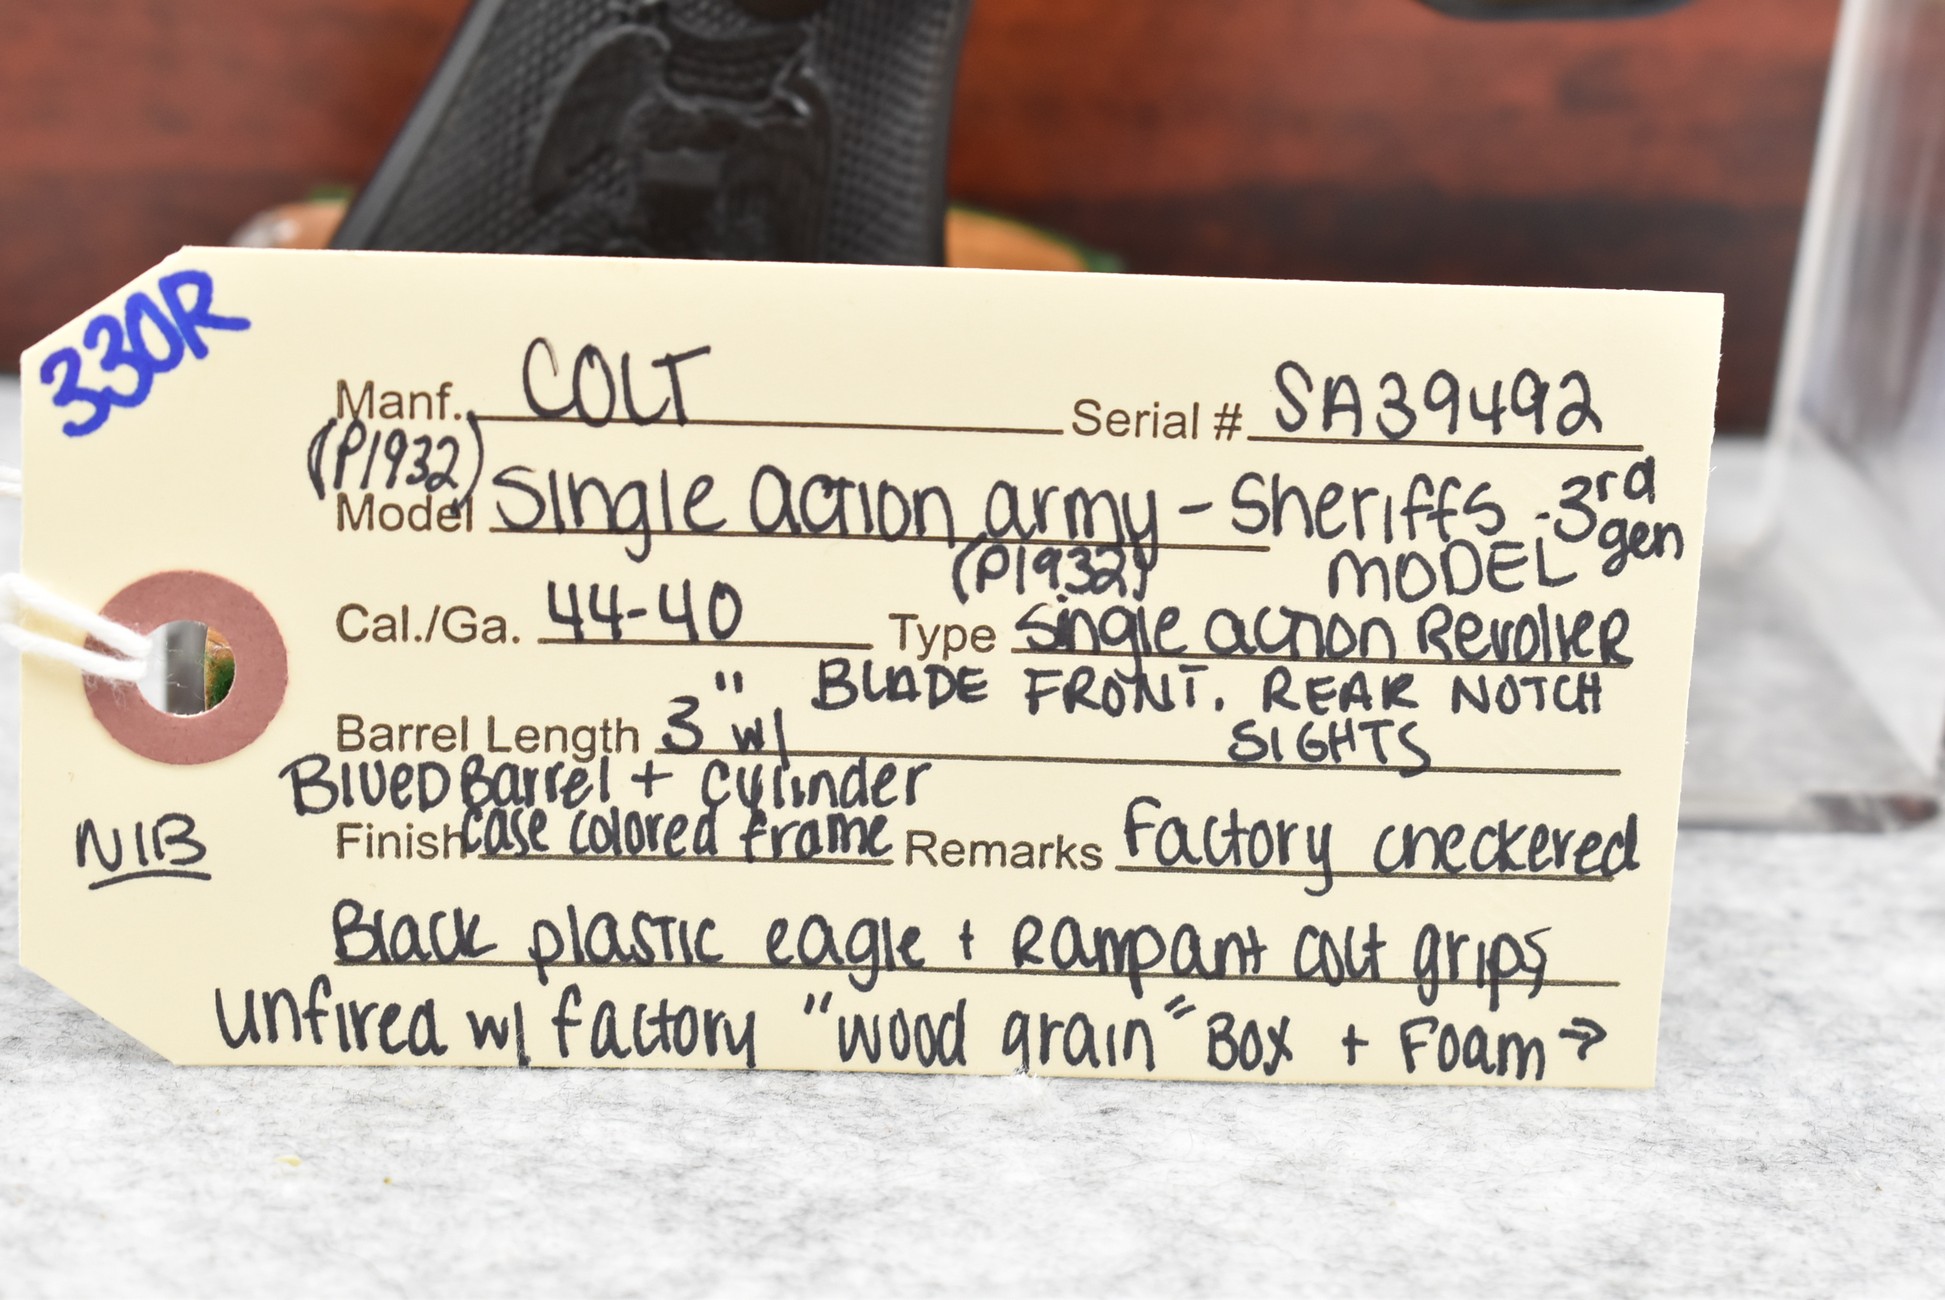 330R
Manf. COLT Serial # SA39492
(P1932)
Model Single action army - Sheriffs - 3rd gen
(P1932) MODEL
Cal./Ga. 44-40 Type Single action Revolver
BLADE FRONT. REAR NOTCH
Barrel Length 3" w/ SIGHTS
Blued Barrel + cylinder
Finish case colored frame Remarks factory checkered
NIB
Black plastic eagle + Rampant colt grips
unfired w/ factory "wood grain" Box + Foam →